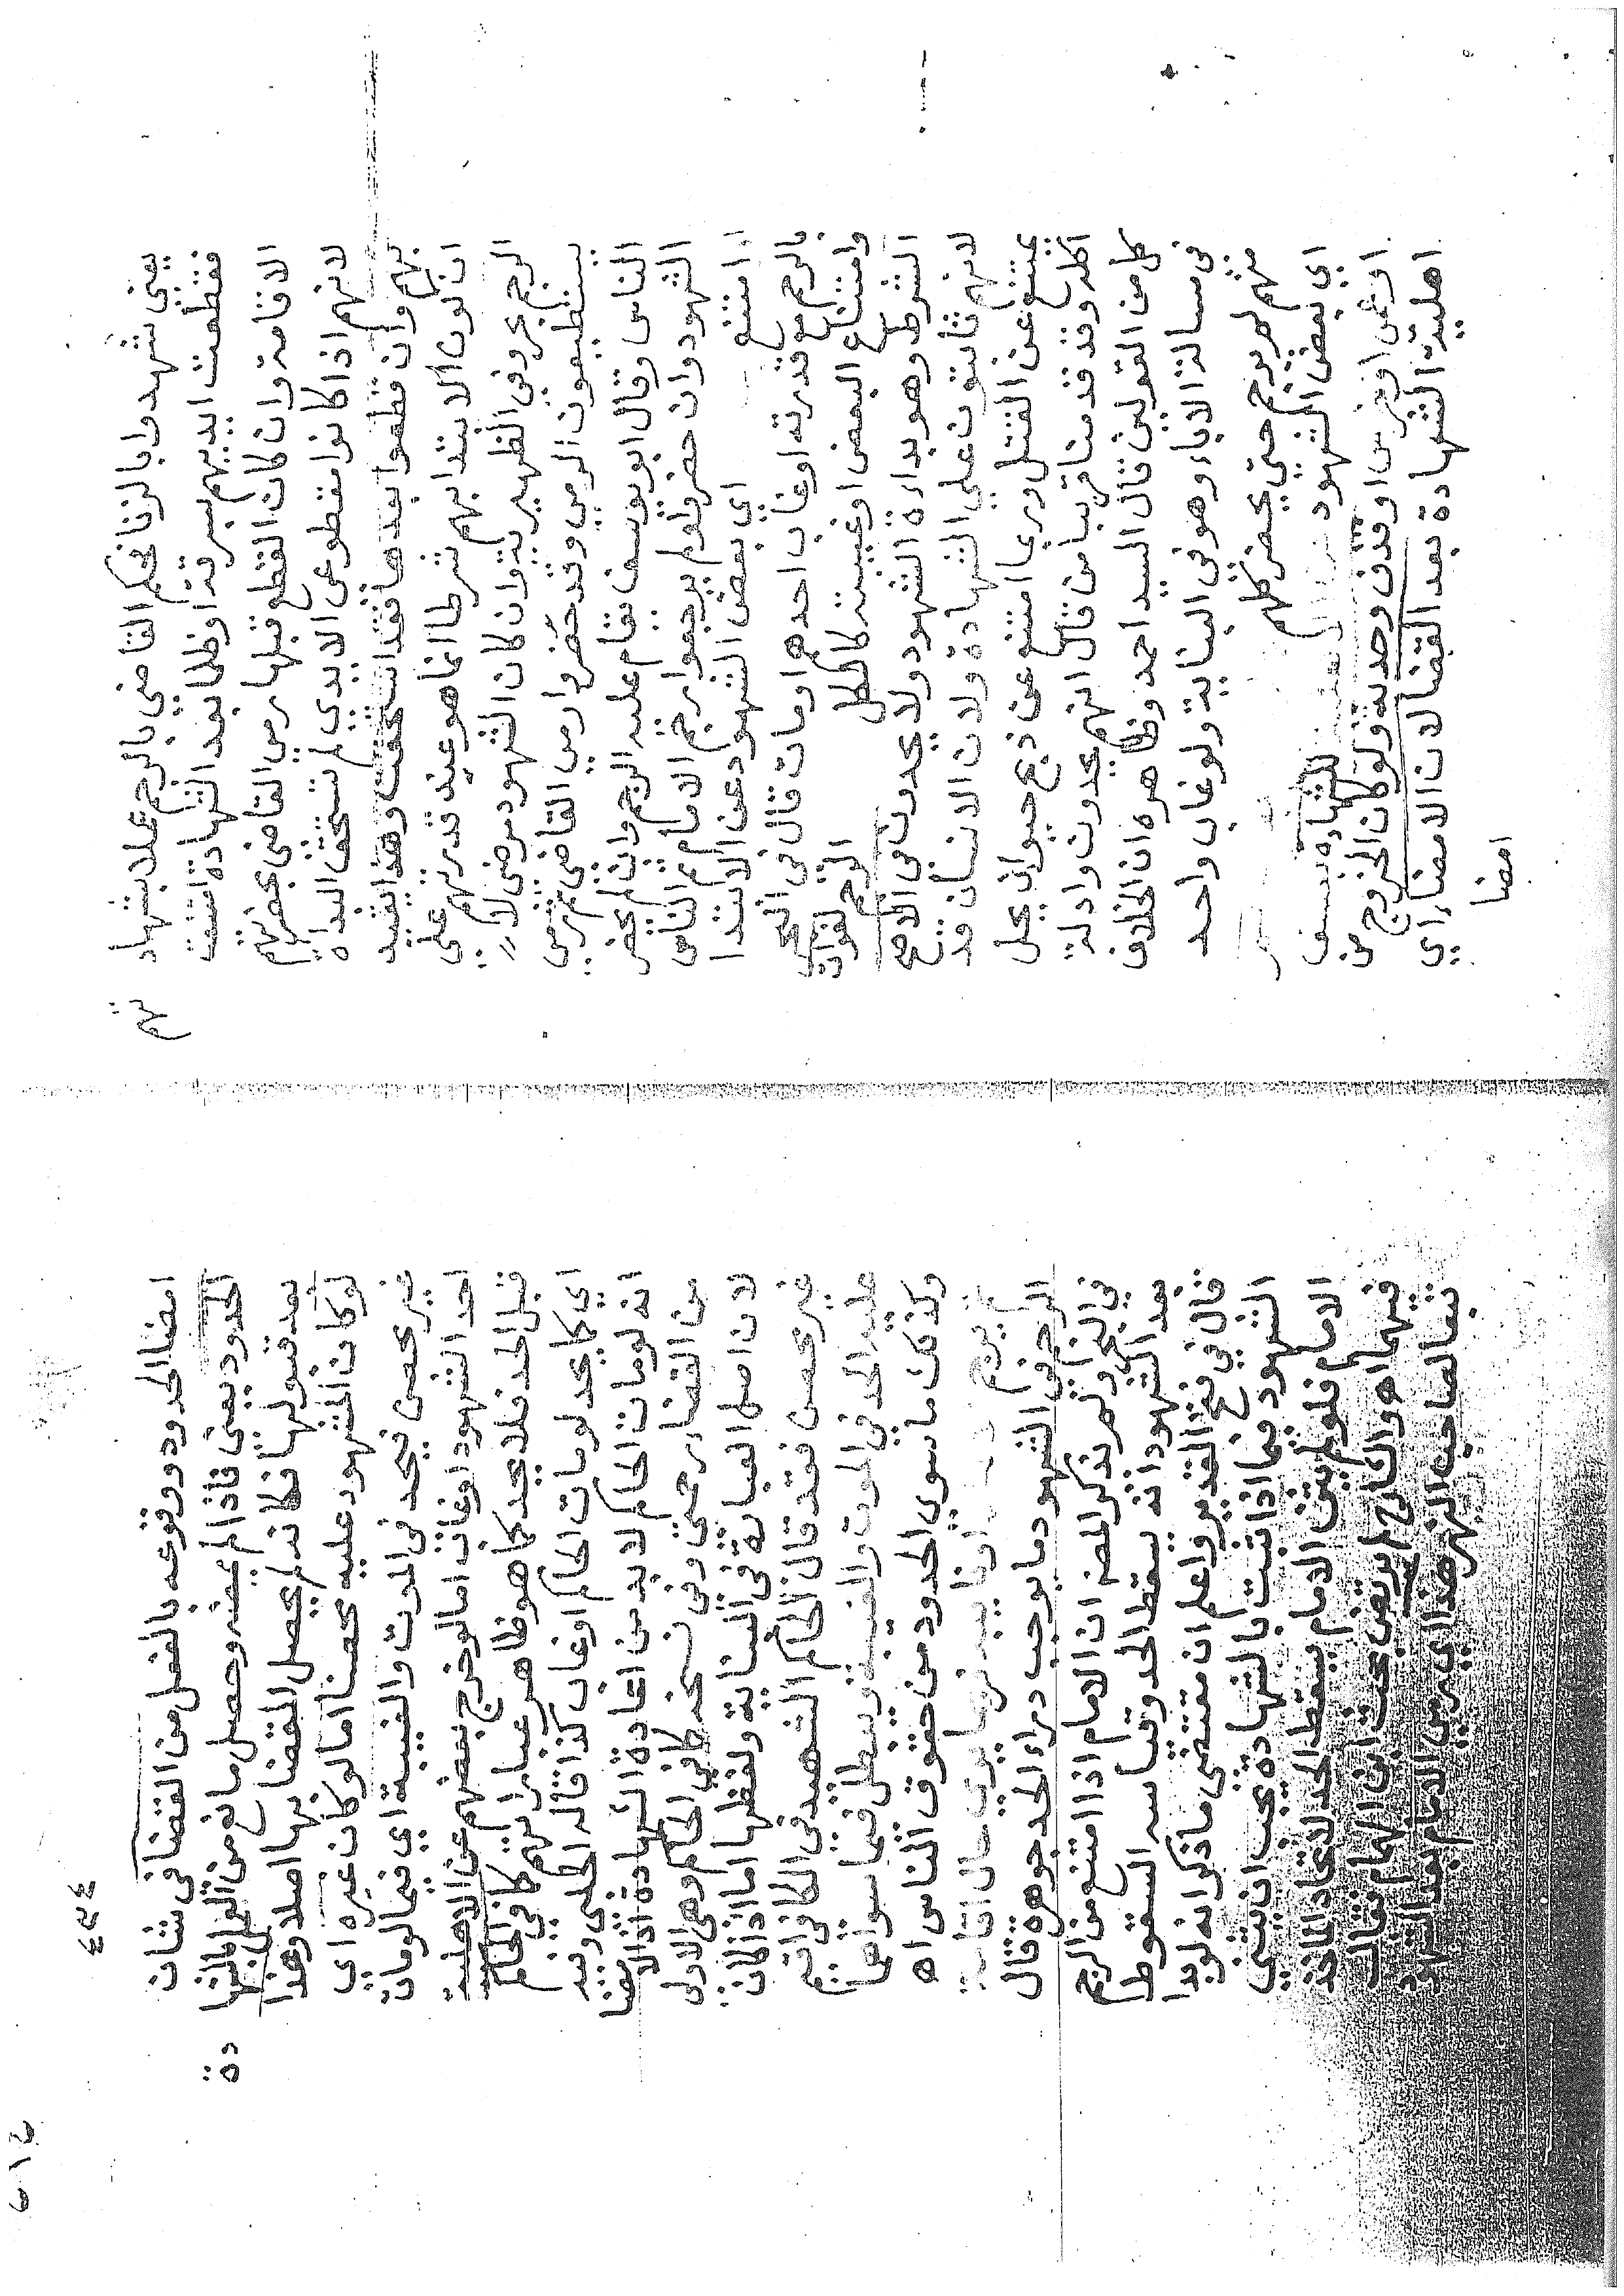 يعني شهدوا بالزنا فحكم القاضي بالرجم عملا بشهاد
تهم
فقطعت ايديهم بسرقة او ظلما بعد الشهادة امتنعت
الاقامة وان كان القطع قبلها رمي القاضي بحضرتهم
لانهم اذا كانوا مقطوعي الايدي لم تستحق البداءة
بهم وان قطعوا بعدها فقد استحقت وهذا يفيد
ان كون الابتدا بهم شرطا انما هو عند قدرتهم على
الرجم بحر وفي الظهيرية وان كان الشهود مرضى لا
يستطيعون الرمي وقد حضروا رمي القاضي ثم رمى
الناس وقال ابو يوسف يقام عليه الرجم وان لم يحضر
الشهود وان حضروا ولم يرجموا رجم الامام ثم الناس
امتنع اي بعض الشهود عن الابتدا
بالرجم مع قدرته او غاب احدهم او مات قال في البحر
وامتناع البعض او غيبته كالكل الرجم لفوات
الشرط وهو بداءة الشهود ولا يحدون في الاصح
لانهم ثابتون على الشهادة ولان الانسان قد
يمتنع عن القتل وربما امتنع عن ذبح حيوان يحل
اكله وقد قدمنا قريبا من قال انهم يحدون وادلة
كل من القولين قال السيد احمد وظاهره ان الخلاف
في مسالة الاباء وهو في البناية ولو غاب واحد
منهم لم يرجم حتى يحضر كلهم
اي بعض الشهود للشهادة بفسق
او عمى او خرس او قذف وحد به ولو كان الخروج عن
اهلية الشهادة بعد القضا لان الامضا راي
امضا
٢١٩
٤٩٤
امضا الحدود ووقوعه بالفعل من القضا في شان
الحدود يعني فاذا لم يمضه وحصل مانع من العمل بالشها
دة
بعد قبولها فكانه لم يحصل القضا بها اصلا وهذا
لو كان المشهود عليه محصنا اما لو كان غيره اي
غير محصن فيحد في الموت والغيبة اي فيما لو مات
احد الشهود او غاب اما لو خرج بعضهم عن الاهلية
قبل الحد فلا يحد كما هو ظاهر عباراتهم كافي الحاكم
اي كما يحد لو مات الحاكم او غاب كذا قاله الحلبي وفيه
انه لو مات الحاكم لا بد من اعادة الشهادة اذ الامضا
من القضا رحمتي وفي نسخة كما في الحاكم وهي الاولى
لان اصل العبارة في البناية ولفظها اما اذا كان
غير محصن فقد قال الحاكم الشهيد في الكافي اقيم
عليه الحد في الموت والغيبة ويبطل فيما سواهما
وكذلك ما سوى الحدود من حقوق الناس اه
الرجم في الشهود ما يوجب دراء الحد جوهرة قال
في البحر ولم يذكر المصنف ان الامام اذا امتنع من الرجم
بعد الشهود انه يسقط الحد وقياسه السقوط
قال في فتح القدير واعلم ان مقتضى ما ذكر انه لو بدا
الشهود فيما اذا ثبت بالشهادة يجب ان يثني
الامام فلو لم يثن الامام يسقط الحد لاتحاد الماخذ
فيهما اه والشارح لم يرتض بحث ابن الهمام فقال
تبعا لصاحب النهر هذا اي رمي الامام بعد الشهود